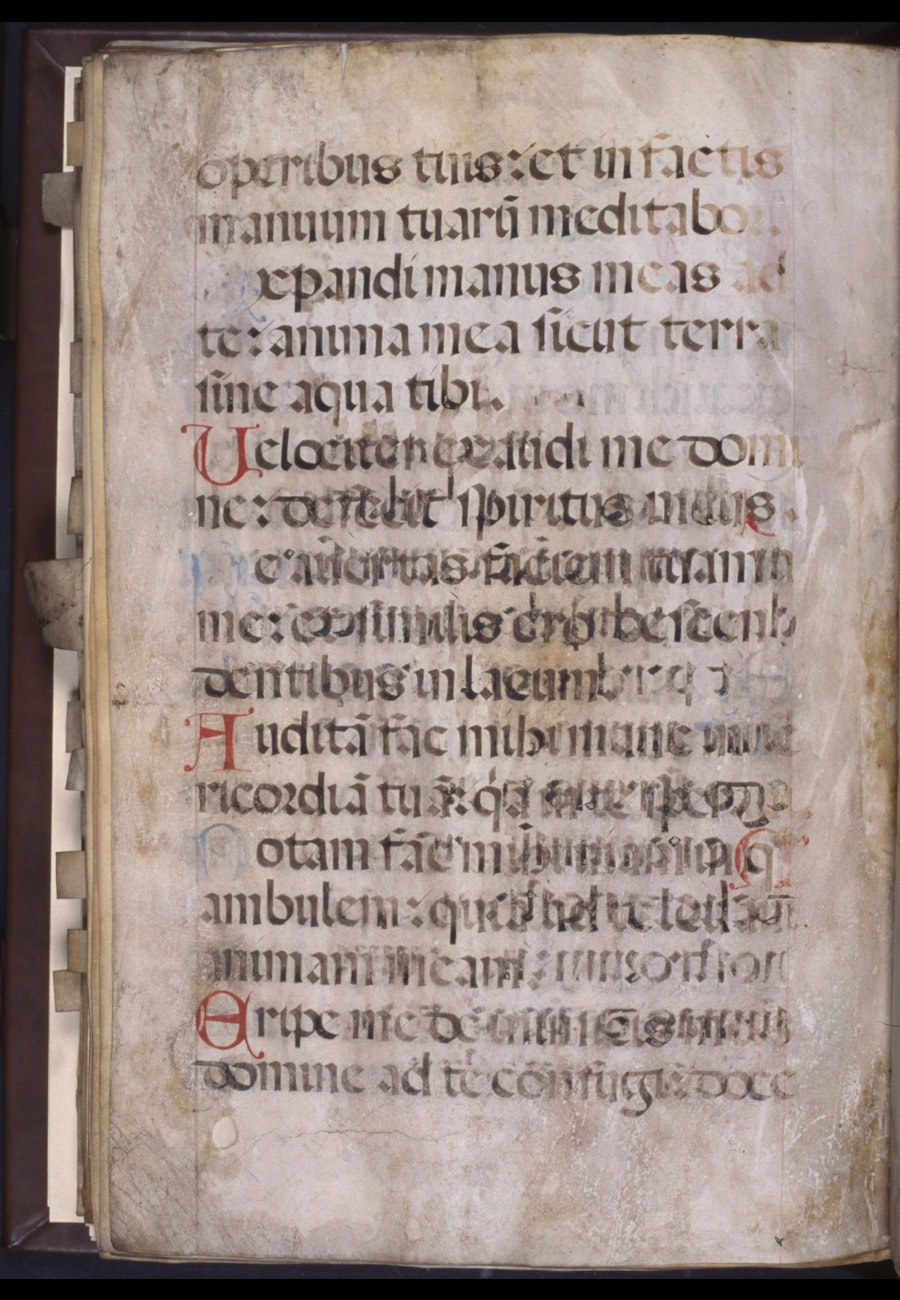 operibus tuis: et in factis
manuum tuarū meditabor.
xpandi manus meas ad
te: anima mea sicut terra
sine aqua tibi.
Velociter exaudi me domi
ne: defecit spiritus meus.
e avertas faciem tuam a
me: et similis ero descen
dentibus in lacum
Auditā fac mihi mane mise
ricordiā tuā: q̄a in te speravi.
Notam fac mihi viam in q̄
ambulem: quia ad te levavi
animam meam:
Eripe me de inimicis meis
domine ad te cōnfugi: doce